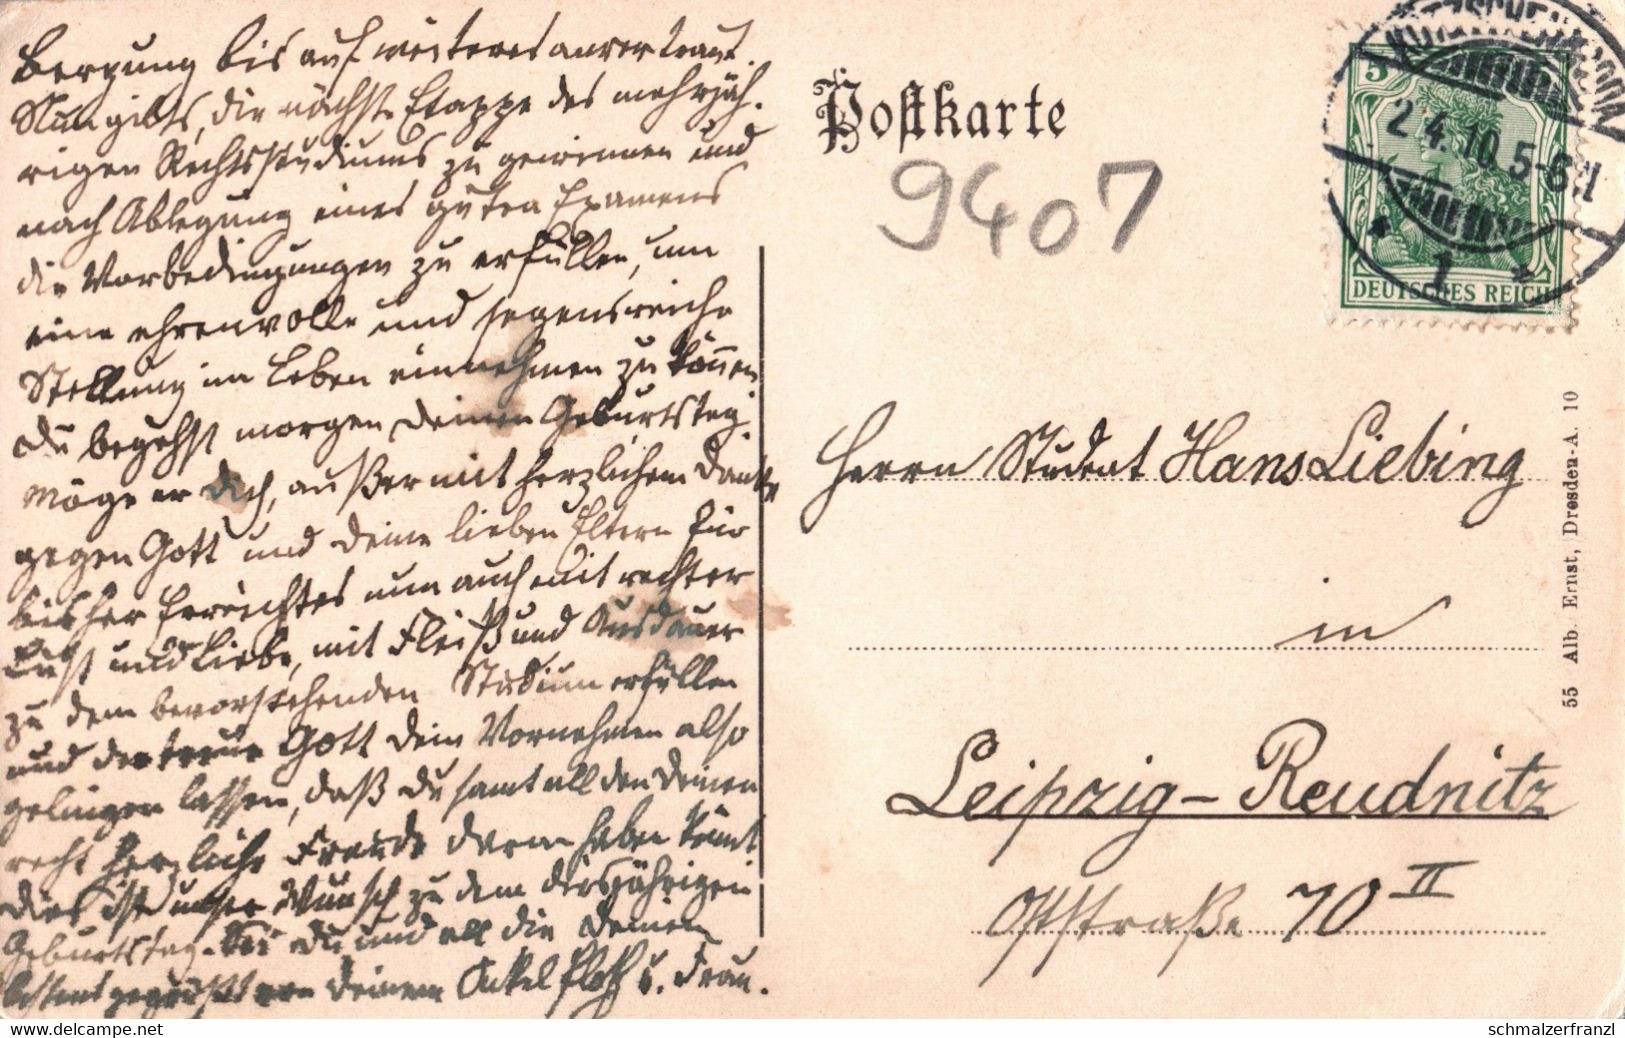 Bergung bis auf weiteres anvertraut.
Nun gibts, die nächste Etappe des mehrjäh-
rigen Rechtsstudiums zu gewinnen und
nach Ablegung eines guten Examens
die Vorbedingungen zu erfüllen, um
eine ehrenvolle und segensreiche
Stellung im Leben einnehmen zu können.
Du begehst morgen Deinen Geburtstag.
Möge er Dich, außer mit herzlichem Danke
gegen Gott und deine lieben Eltern für
bisher Erreichtes nun auch mit rechter
Lust und Liebe, mit Fleiß und Ausdauer
zu dem bevorstehenden Studium erfüllen
und der treue Gott Dein Vornehmen also
gelingen lassen, daß Du samt all den Deinen
recht herzliche Freude daran haben könnt
Dies ist unser Wunsch zu dem diesjährigen
Geburtstag. Sei Du und all die Deinen
bestens gegrüßt von Deinem Onkel u. Frau.
Postkarte
9407
5
2.4.10.5-6
1
DEUTSCHES REICH
Herrn Student Hans Liebing
in
Leipzig-Reudnitz
Oststraße 70 II
55 Alb. Ernst, Dresden-A. 10
www.delcampe.net
schmalzerfranzl